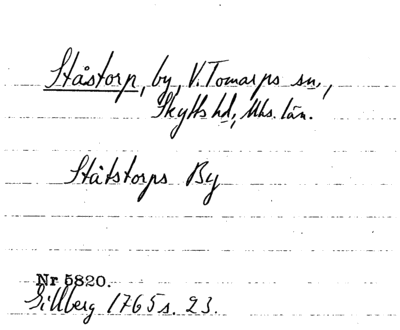 Ståstorp, by, V. Tomarps sn.,
Skytts hd, Mhs. län.
Ståtstorps By
Nr 5820.
Gillberg 1765 s. 23.